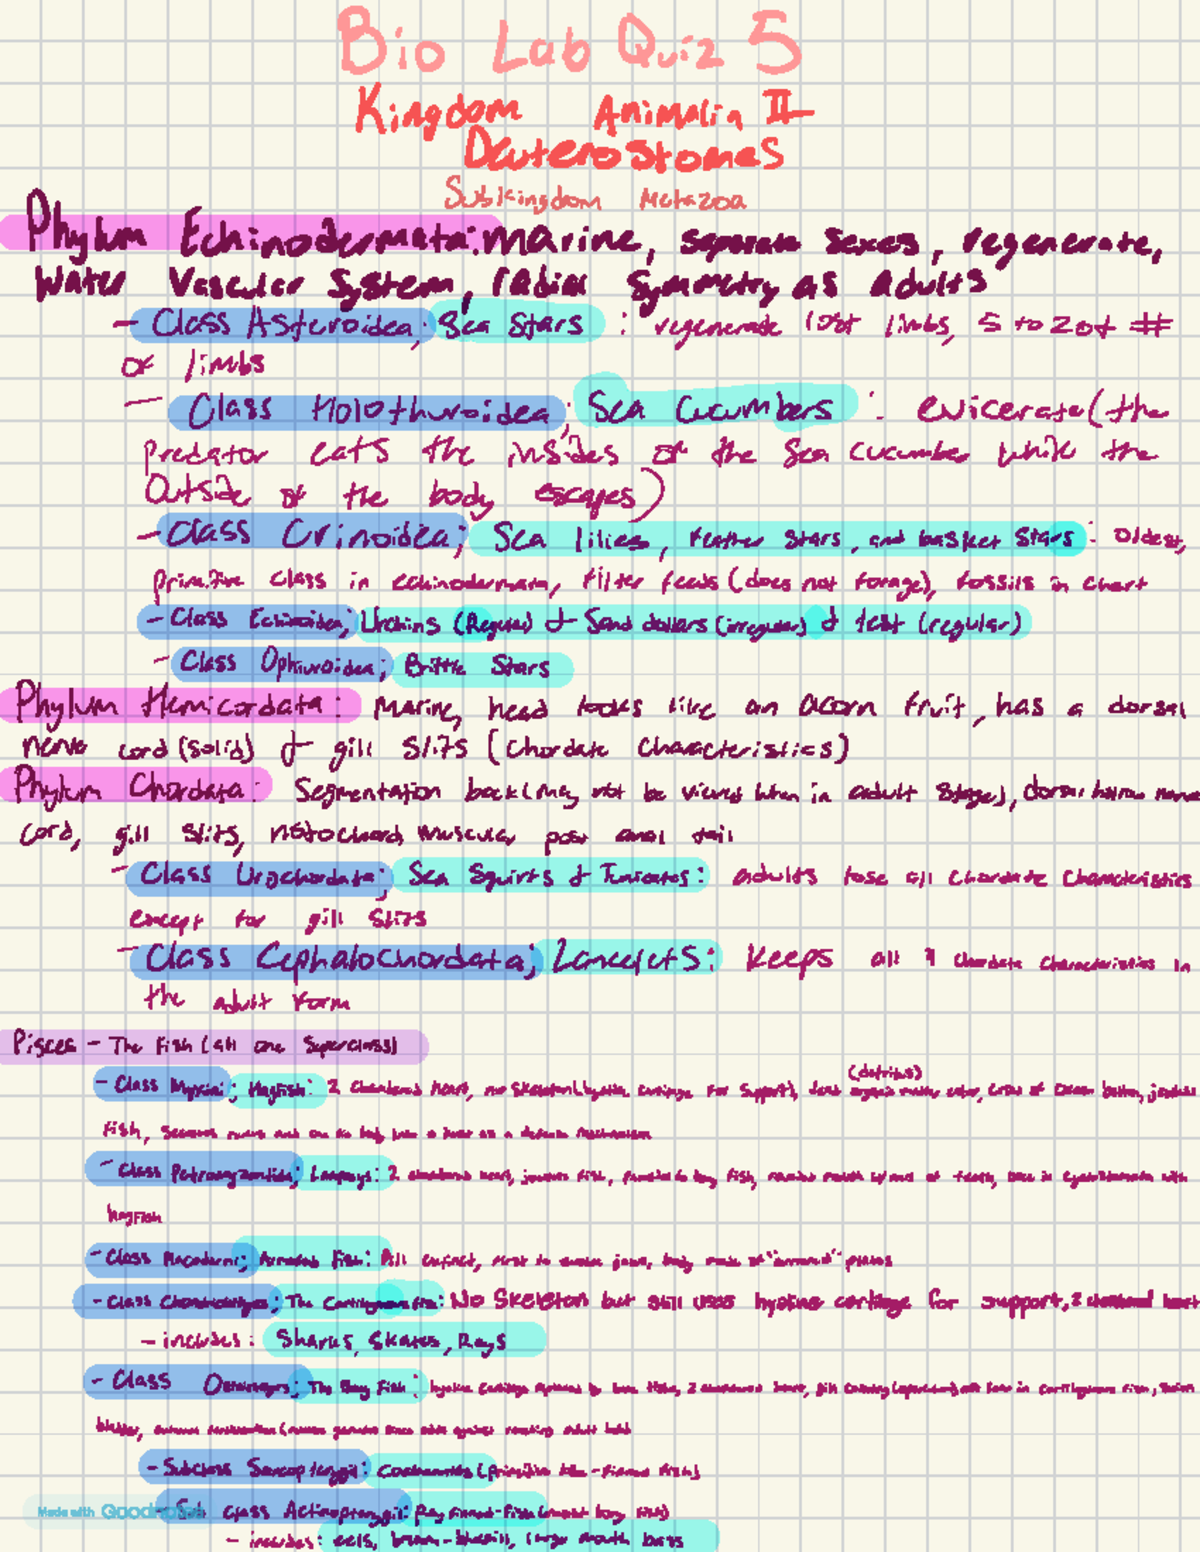 Bio Lab Quiz 5
Kingdom Animalia II
Deuterostomes
Subkingdom Metazoa
Phylum Echinodermata: marine, separate sexes, regenerate,
Water Vascular System, radial Symmetry as adults
- Class Asteroidea; Sea Stars : regenerate lost limbs, 5 to 20+ #
of limbs
- Class Holothuroidea; Sea Cucumbers : evicerate (the
predator eats the insides of the sea cucumber while the
outside of the body escapes)
- Class Crinoidea; Sea lilies, feather stars, and basket stars : oldest,
primitive class in echinodermata, filter feeds (does not forage), fossils in chart
- Class Echinoidea; Urchins (Regular) & Sand dollars (irregular) & test (regular)
- Class Ophiuroidea; Brittle Stars
Phylum Hemicordata: Marine, head looks like an acorn fruit, has a dorsal
nerve cord (solid) & gill slits (chordate characteristics)
Phylum Chordata: Segmentation back (may not be viewed when in adult stage), dorsal hollow nerve
cord, gill slits, notochord, muscular post anal tail
- Class Urochordata; Sea Squirts & Tunicates: adults lose all chordate characteristics
except for gill slits
- Class Cephalochordata; Lancelets: keeps all 4 chordate characteristics in
the adult form
Pisces - The Fish (all one superclass)
(detritus)
- Class Myxini; Hagfish: 2 chambered heart, no skeleton (hyaline cartilage for support), dead organic matter eater, jawless
fish, as a defense mechanism
- Class Petromyzontida; Lampreys: 2 chambered heart, jawless fish, bony fish, mouth of teeth, with
hagfish
- Class Placodermi; Armored Fish: All extinct, first to evolve jaws, body made of "armored" plates
- Class Chondrichthyes; The Cartilaginous fish: No Skeleton but still uses hyaline cartilage for support, 2 chambered heart
- includes: Sharks, Skates, Rays
- Class Osteichthyes; The Bony Fish: hyaline cartilage replaced by bone, 2 chambered heart, gill covering (operculum) not found in cartilaginous fish, swim
bladder,
- Subclass Sarcopterygii: Coelacanths (primitive lobe-finned fish)
Made with Goodnotes
- Sub class Actinopterygii: Ray finned-Fish (most bony fish)
- includes: eels, bream-bluegill, large mouth bass